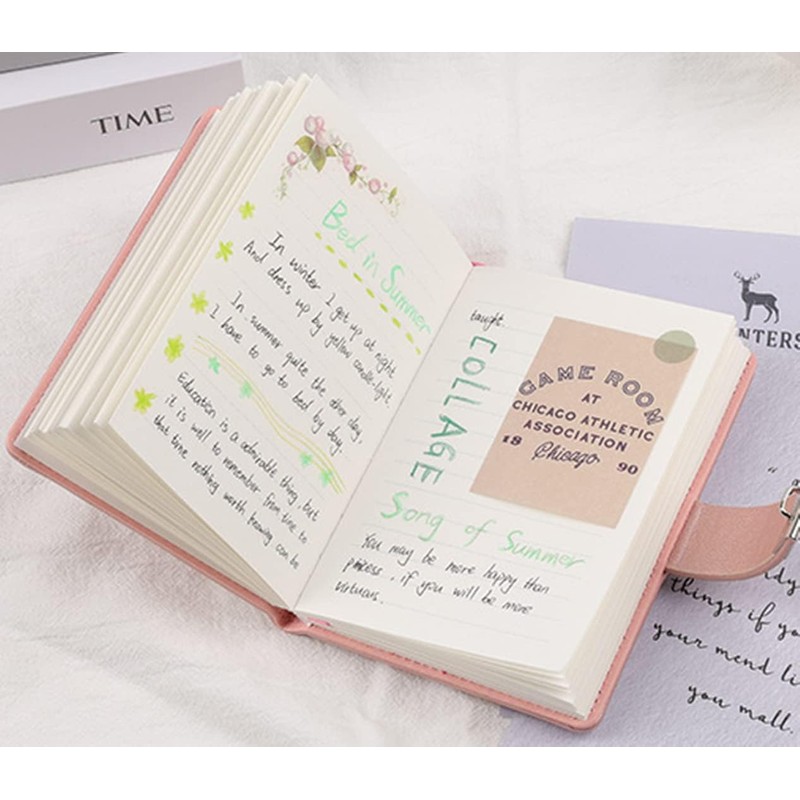 TIME
Bed in Summer
In winter I get up at night
And dress up by yellow candle-light.
In summer quite the other day,
I have to go to bed by day.
Education is a admirable thing, but
it is well to remember from time to
that time nothing worth knowing can be
taught.
COLLAGE
GAME ROOM
AT
CHICAGO ATHLETIC
ASSOCIATION
18 Chicago 90
Song of Summer
You may be more happy than
princess, if you will be more
virtuous.
NTERS
things if yo
your mend li
you mall.